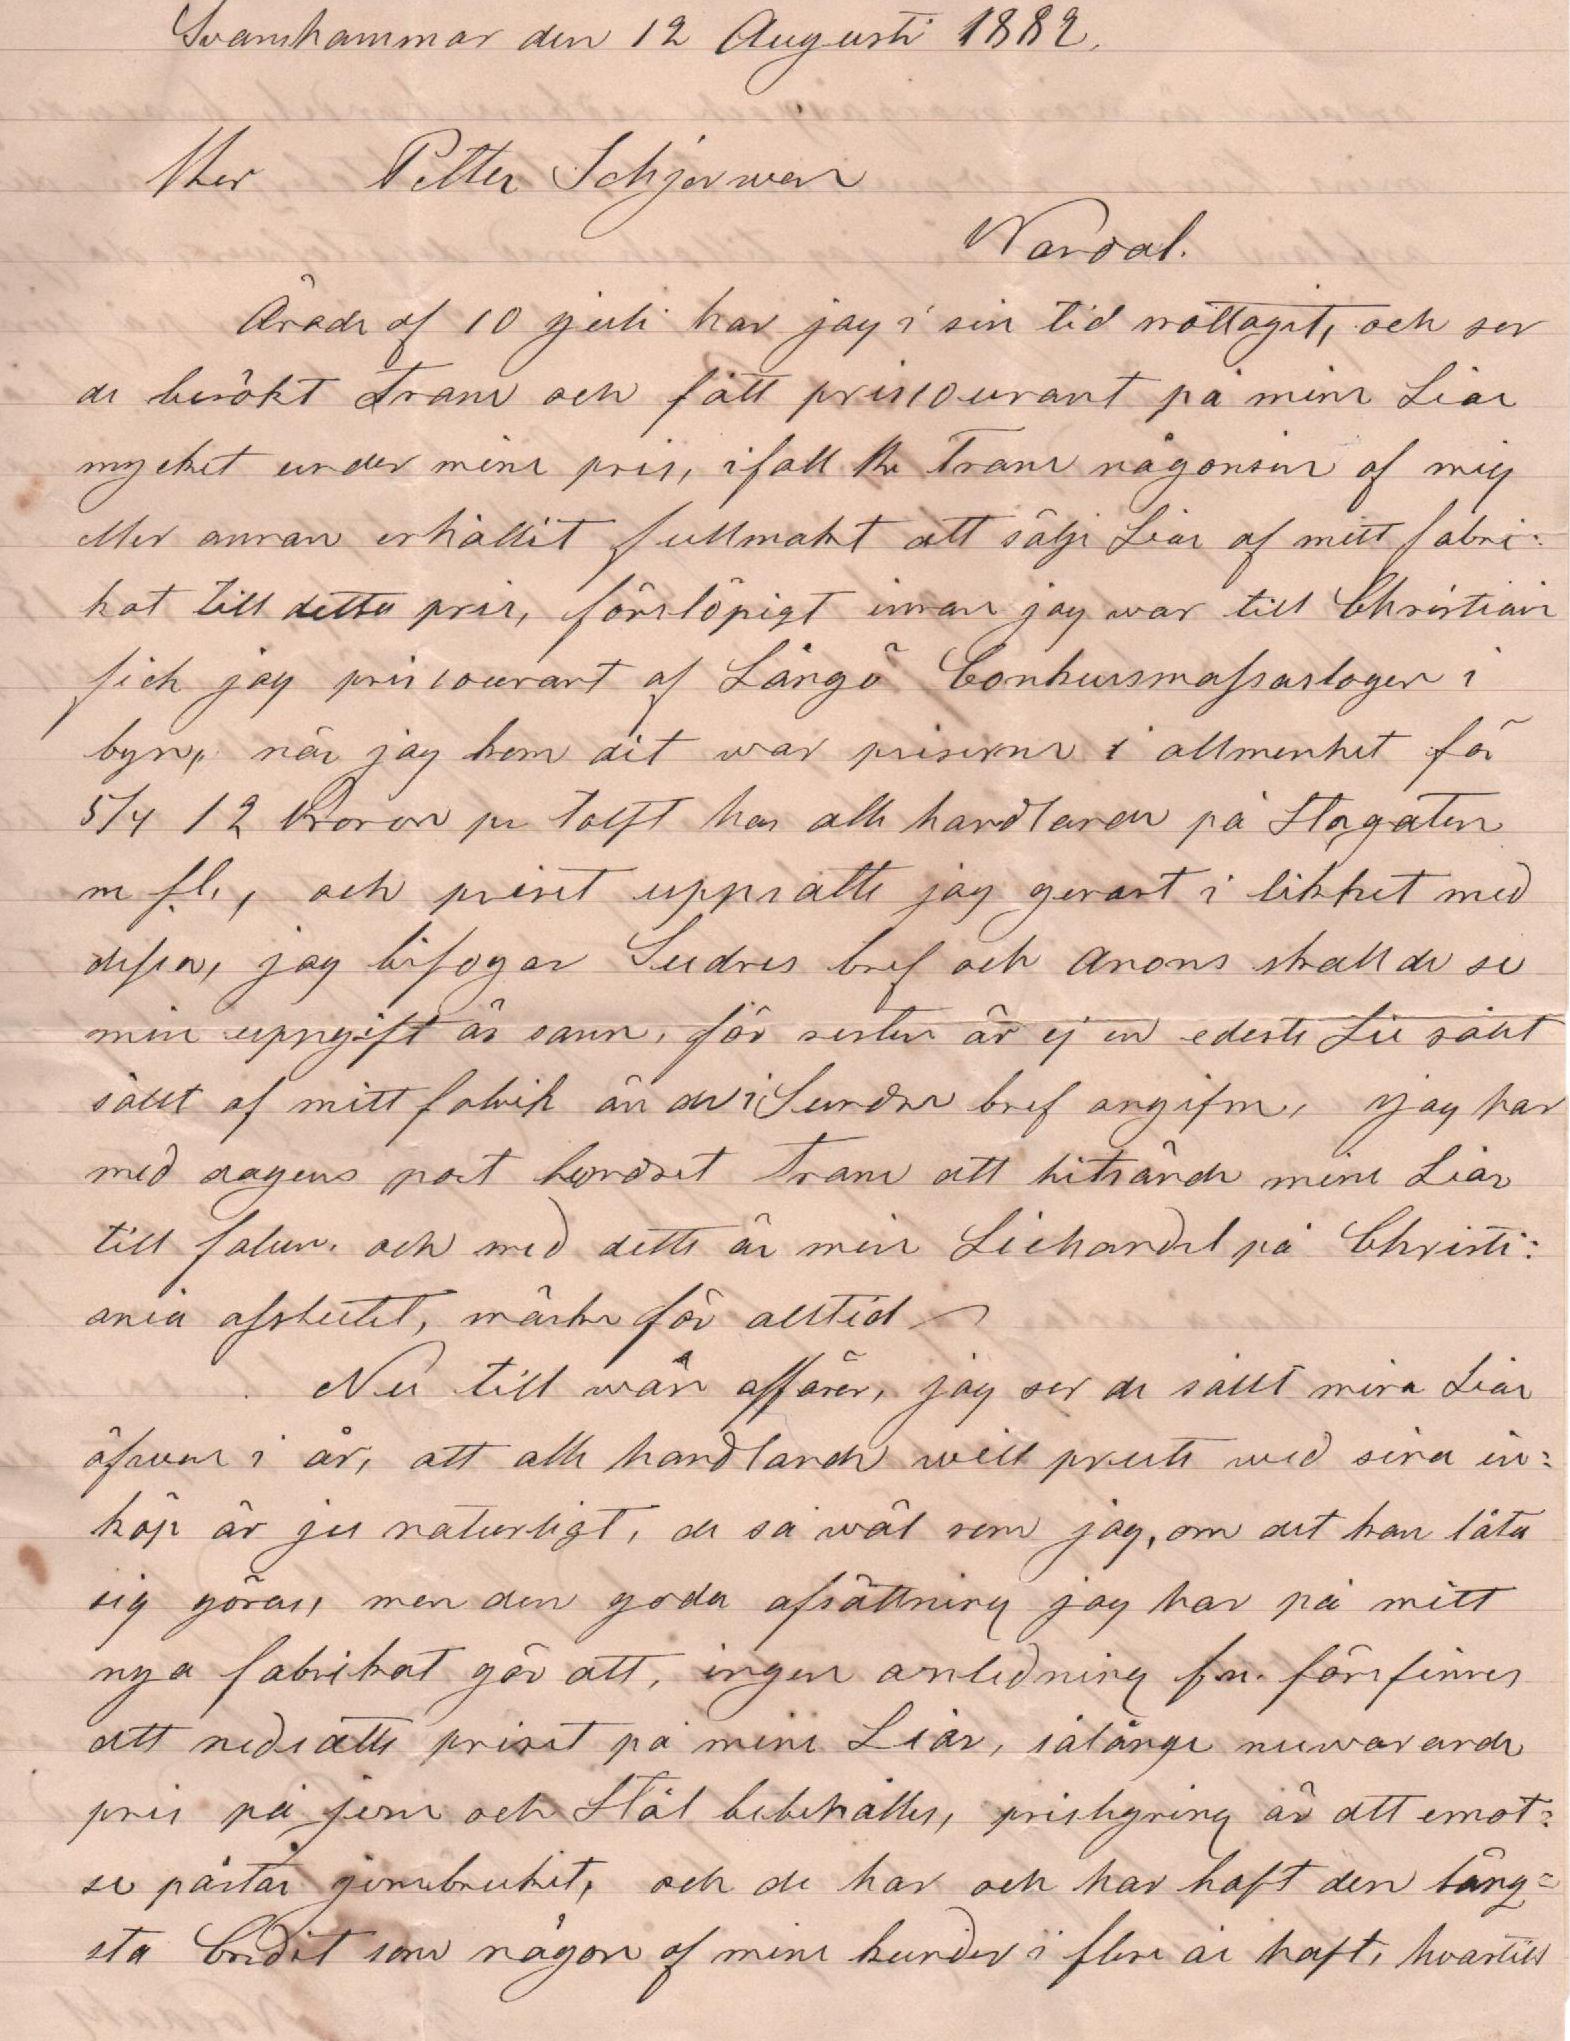 Svanshammar den 12 Augusti 1882.
Herr Petter Schjerwen
Wardal.
Ärade af 10 juli har jag i sin tid mottagit, och ser
de besökt Trane och fått priscourant på mine Liar
mycket under mine pris, ifall Hr Trane någonsin af mig
eller annan erhållit fullmakt att sälje Liar af mitt fabri:
kat till detta pris, förelöpigt innan jag war till Christian
fick jag priscourant af Långö Conkursmassaslager i
byn, när jag kom dit war priserne i allmenhet för
5/4 12 Kronor pr tolft hos alle handlande på Storgaten
m fl., och priset uppsatte jag genast i likhet med
dessa, jag bifogar Sundres bref och Anons skall de se
min uppgift är sann, för resten är ej en edeste Lie sålt
sålt af mitt fabrik än de i Sundre bref angifne, jag har
med dagens post beordret Trane att hitsände mine Liar
till Falun. och med dette är min Liehandel på Christi:
ania afslutet, märke för alltid
Nu till wår affärer, jag ser de sålt mina Liar
äfwen i år, att alle handlande will prute wid sina in:
köp är ju naturligt, de så wäl som jag, om det kan låta
sig göras, men den goda afsättning jag har på mitt
nya fabrikat gör att, ingen anledning f.n. förefinnes
att nedsätte priset på mine Liar, sålänge nuwarande
pris på jern och Stål bibehålles, prishgring är att emot:
se påstår jernbruket, och de har och har haft den läng=
sta Credit som någon af mine kunder i flere år haft, hvartill